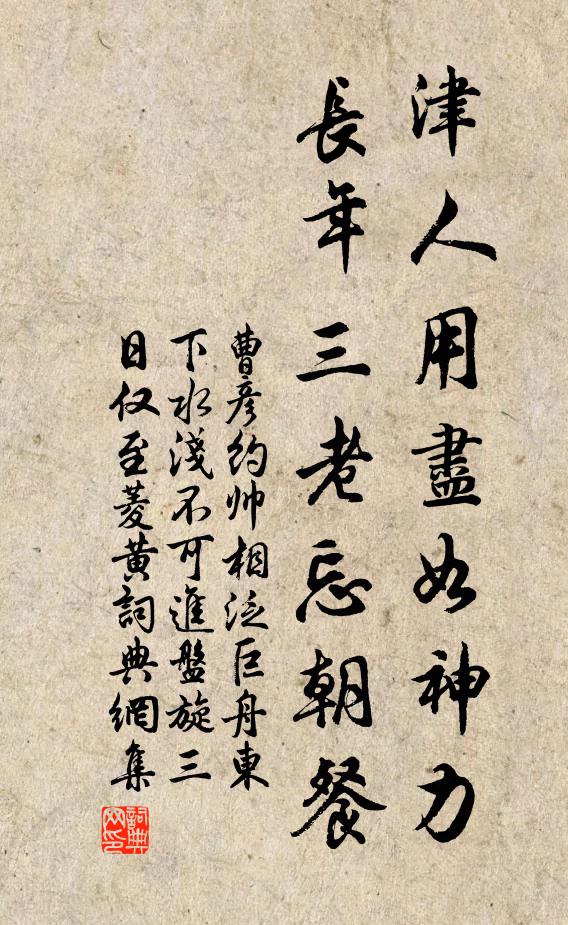 津人用盡如神力
長年三老忘朝餐
曹彦約帅相泛巨舟東
下水淺不可進盤旋三
日仅至菱黄詞典網集
詞典
网印